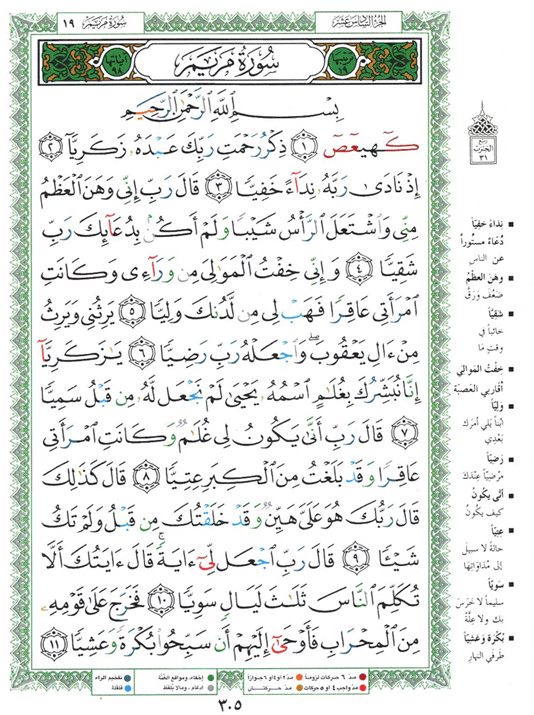 الجزء السادس عشر
سورة مريم ١٩
ترتيبها ١٩
سُورَةُ مَرْيَمَ
آياتها ٩٨
بِسْمِ اللَّهِ الرَّحْمَٰنِ الرَّحِيمِ
كٓهيعٓصٓ ١ ذِكْرُ رَحْمَتِ رَبِّكَ عَبْدَهُۥ زَكَرِيَّآ ٢
إِذْ نَادَىٰ رَبَّهُۥ نِدَآءً خَفِيًّا ٣ قَالَ رَبِّ إِنِّى وَهَنَ ٱلْعَظْمُ
مِنِّى وَٱشْتَعَلَ ٱلرَّأْسُ شَيْبًا وَلَمْ أَكُنۢ بِدُعَآئِكَ رَبِّ
شَقِيًّا ٤ وَإِنِّى خِفْتُ ٱلْمَوَٰلِىَ مِن وَرَآءِى وَكَانَتِ
ٱمْرَأَتِى عَاقِرًا فَهَبْ لِى مِن لَّدُنكَ وَلِيًّا ٥ يَرِثُنِى وَيَرِثُ
مِنْ ءَالِ يَعْقُوبَ ۖ وَٱجْعَلْهُ رَبِّ رَضِيًّا ٦ يَٰزَكَرِيَّآ
إِنَّا نُبَشِّرُكَ بِغُلَٰمٍ ٱسْمُهُۥ يَحْيَىٰ لَمْ نَجْعَل لَّهُۥ مِن قَبْلُ سَمِيًّا
٧ قَالَ رَبِّ أَنَّىٰ يَكُونُ لِى غُلَٰمٌ وَكَانَتِ ٱمْرَأَتِى
عَاقِرًا وَقَدْ بَلَغْتُ مِنَ ٱلْكِبَرِ عِتِيًّا ٨ قَالَ كَذَٰلِكَ
قَالَ رَبُّكَ هُوَ عَلَىَّ هَيِّنٌ وَقَدْ خَلَقْتُكَ مِن قَبْلُ وَلَمْ تَكُ
شَيْـًٔا ٩ قَالَ رَبِّ ٱجْعَل لِّىٓ ءَايَةً ۚ قَالَ ءَايَتُكَ أَلَّا
تُكَلِّمَ ٱلنَّاسَ ثَلَٰثَ لَيَالٍ سَوِيًّا ١٠ فَخَرَجَ عَلَىٰ قَوْمِهِۦ
مِنَ ٱلْمِحْرَابِ فَأَوْحَىٰٓ إِلَيْهِمْ أَن سَبِّحُوا۟ بُكْرَةً وَعَشِيًّا ١١
ربع
الحزب
٣١
نداءً خفيّاً
دُعاءً مستوراً
عن الناس
وهَن العظْمُ
ضَعُفَ ورَقَّ
شقيّاً
خائباً في
وقتٍ مَا
خِفْتُ الموالي
أقاربي العصبة
وليّاً
ابناً يلي أمرك
بَعْدِي
رَضيّاً
مرْضيّاً عندَك
أنّى يكُونُ
كيف يكُونُ
عِتِيّاً
حالةً لا سبيلَ
إلى مُداواتِها
سويّاً
سليماً لا خرَسَ
بك ولا علّة
بُكْرَةً وعَشيّاً
طرفي النهار
مدّ ٦ حركات لزوماً مدّ ٢ أو ٤ أو ٦ جوازاً إخفاء، ومواقع الغُنَّة تفخيم الراء
مدّ واجب ٤ أو ٥ حركات مدّ حركتان إدغام، وما لا يُلفَظ قلقلة
٣٠٥